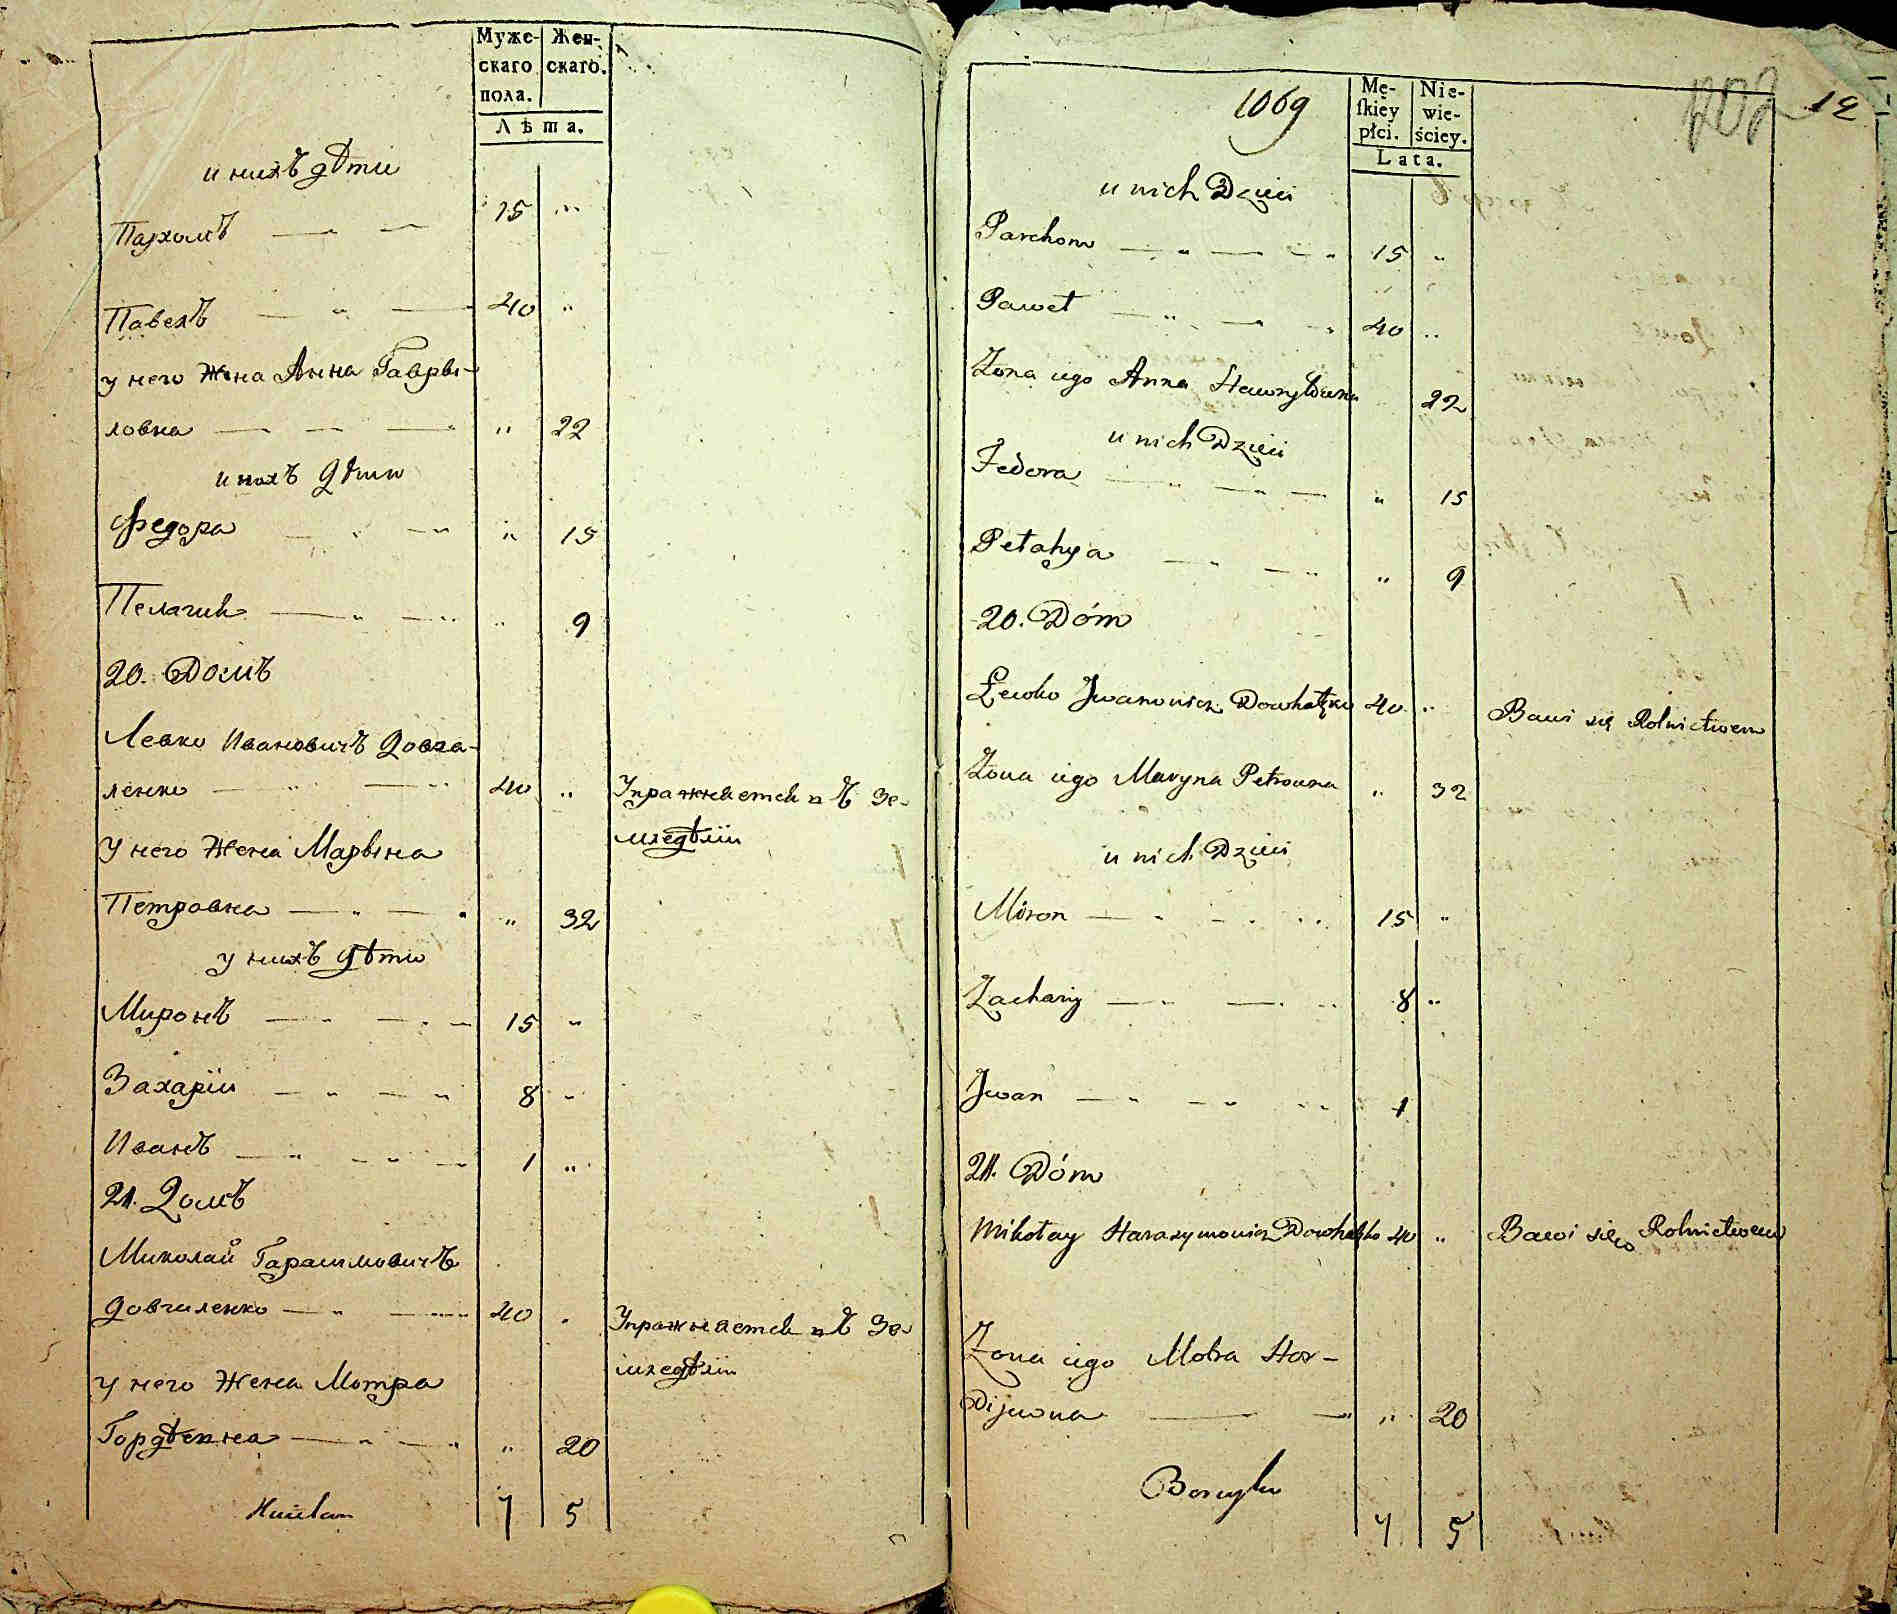 Муже-
скаго
пола.
Жен-
скаго.
Лѣта.
и нихъ дѣти
Пархомъ 15 „
Павелъ 40 „
у него Жена Анна Гаври-
ловна „ 22
и нихъ дѣти
Федора „ 15
Пелагия „ 9
20. Домъ
Левко Ивановичъ Довга-
ленко 40 „ Упражняется въ Зе-
мледѣліи
У него Жена Марьяна
Петровна „ 32
у нихъ дѣти
Миронъ 15 „
Захарій 8 „
Иванъ 1 „
21. Домъ
Миколай Гарасимовичъ
Довгаленко 40 „ Упражняется въ Зе-
мледѣліи
у него Жена Мотра
Гордѣевна „ 20
7 5
1069
Mę-
ſkiey
płci.
Nie-
wie-
ściey.
Lata.
202 12
u nich Dzieci
Parchom 15 „
Paweł 40 „
Żona iego Anna Hawryłowna 22
u nich Dzieci
Fedora „ 15
Pełahya „ 9
20. Dóm
Łewko Jwanowicz Dowhalenko 40 „ Bawi się Rolnictwem
Żona iego Maryna Petrowna „ 32
u nich Dzieci
Miron 15 „
Zachariy 8 „
Jwan 1
21. Dóm
Mikołay Harasymowicz Dowhalenko 40 „ Bawi się Rolnictwem
Żona iego Motra Hor-
dijewna „ 20
7 5